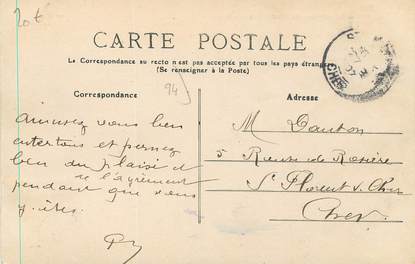 20t
CARTE POSTALE
La Correspondance au recto n'est pas acceptée par tous les pays étrangers
(Se renseigner à la Poste)
94
Correspondance
Adresse
CHER
amusez vous bien
et prenez
bien du plaisir
et de l'agrément
pendant que vous
y êtes.
M Dauton
5 Route de Rosière
St Florent s. Cher
Cher.